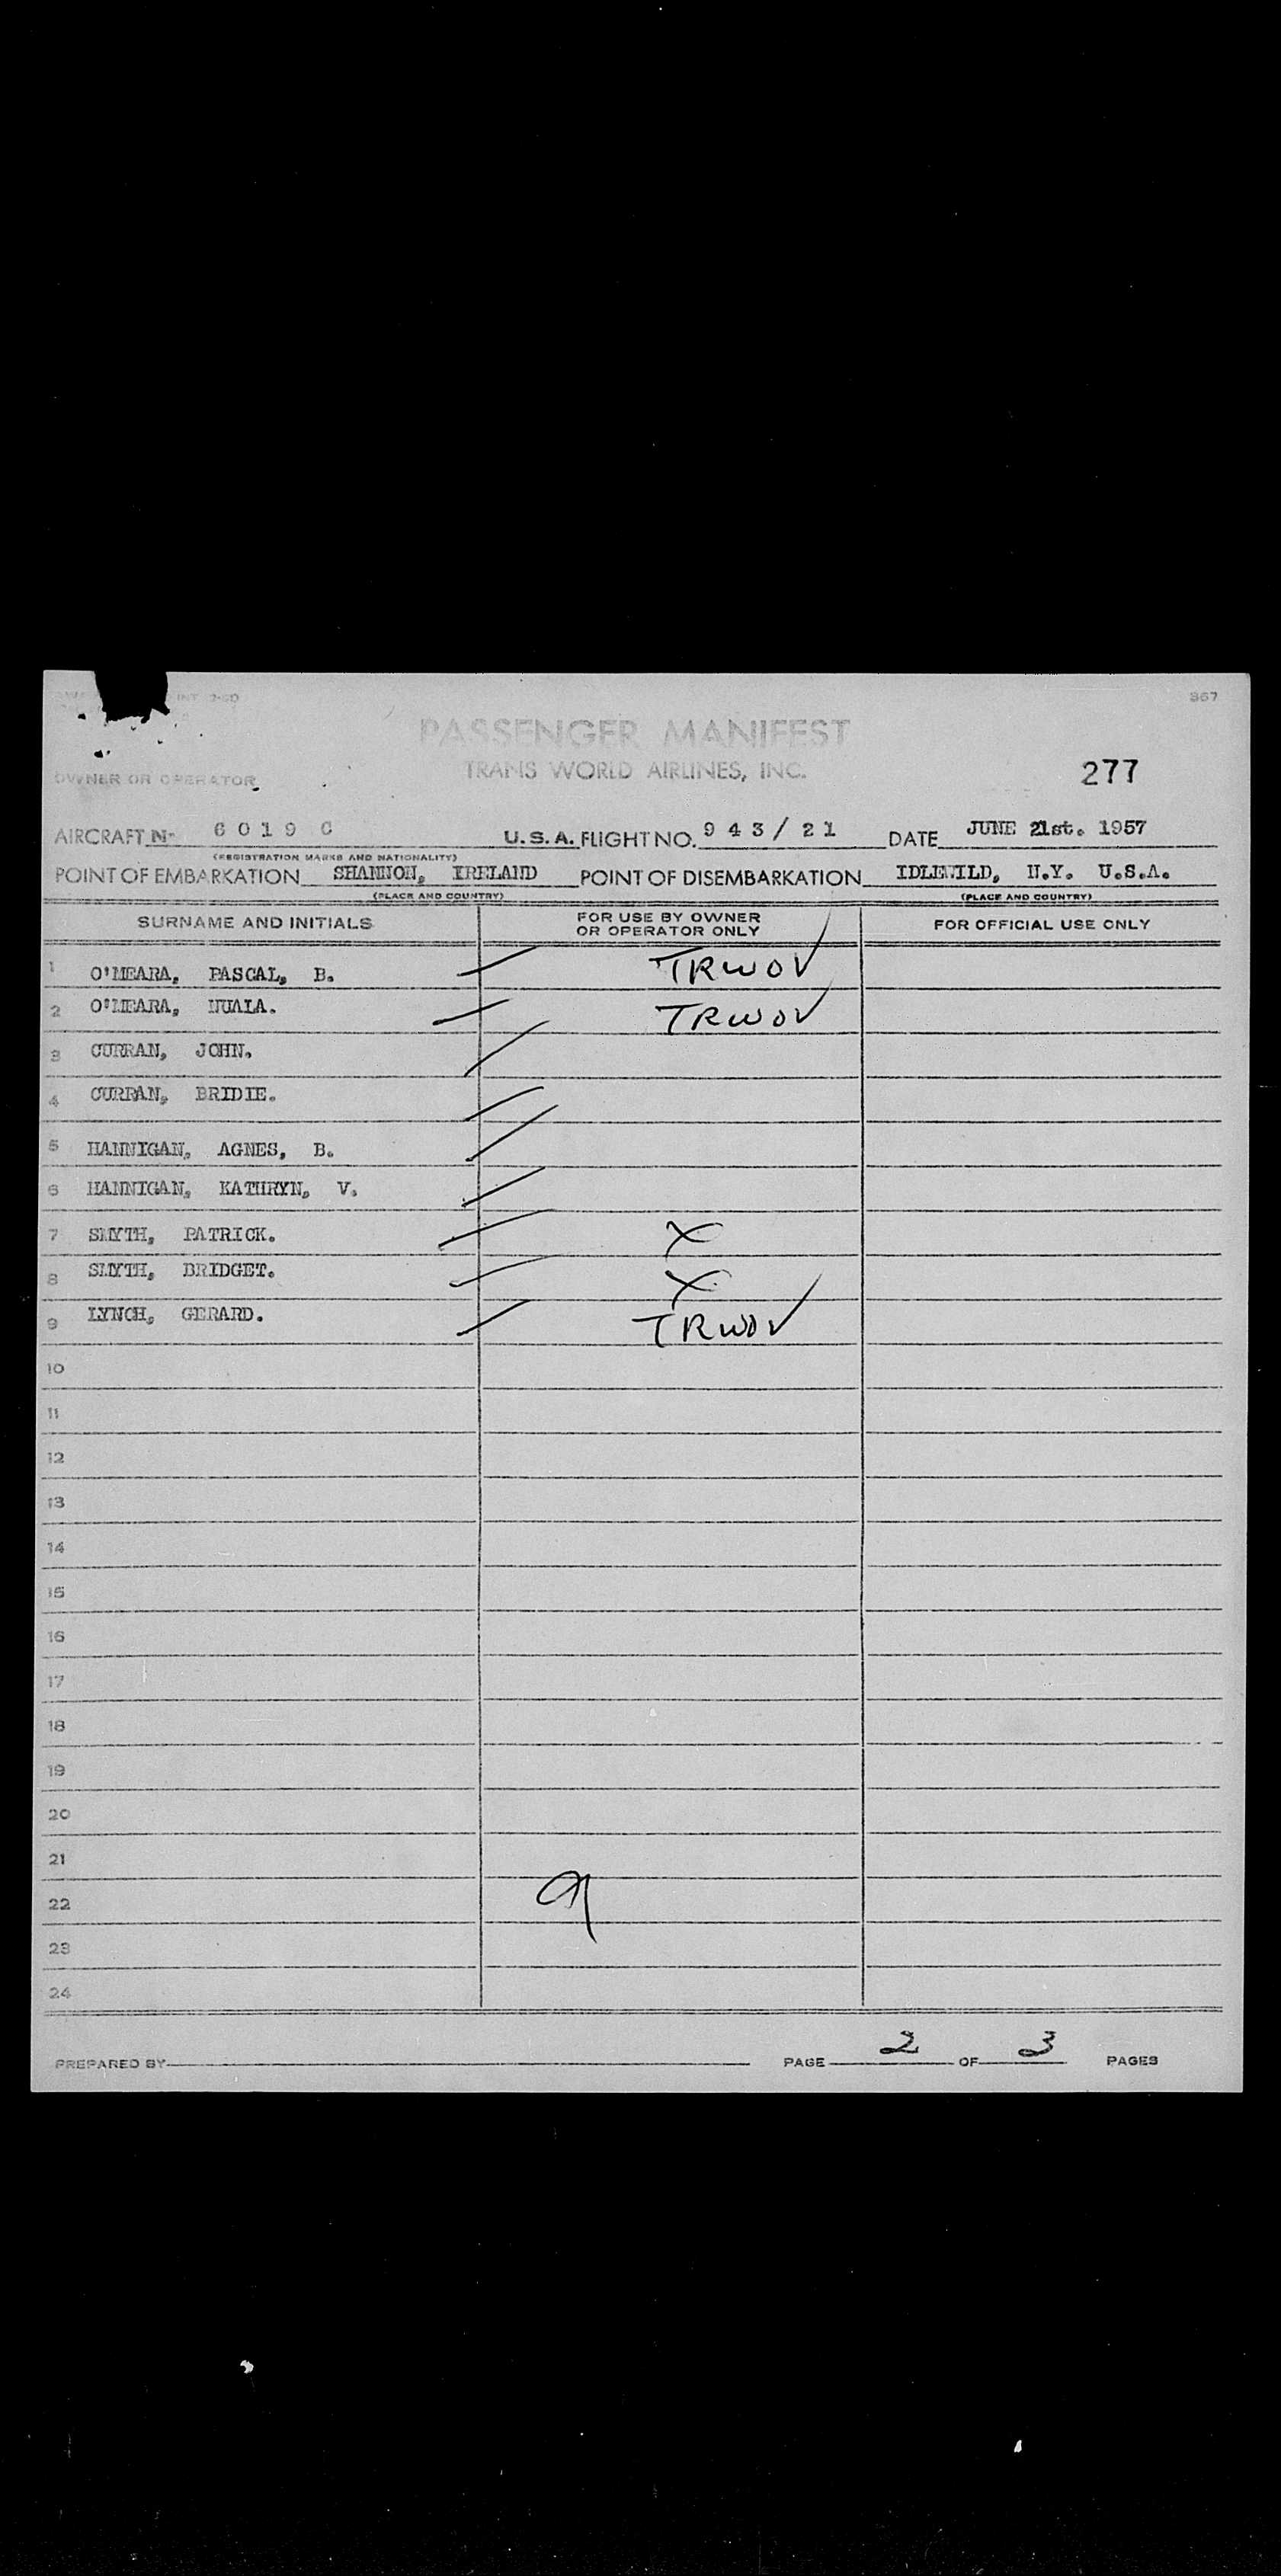 INT 7-50
367
PASSENGER MANIFEST
TRANS WORLD AIRLINES, INC.
277
OWNER OR OPERATOR
AIRCRAFT N- 6019 C U.S.A. FLIGHT NO. 943/21 DATE JUNE 21st. 1957
(REGISTRATION MARKS AND NATIONALITY)
POINT OF EMBARKATION SHANNON, IRELAND POINT OF DISEMBARKATION IDLEWILD, N.Y. U.S.A.
(PLACE AND COUNTRY) (PLACE AND COUNTRY)
SURNAME AND INITIALS FOR USE BY OWNER OR OPERATOR ONLY FOR OFFICIAL USE ONLY
1 O'MEARA, PASCAL, B. TRWOV
2 O'MEARA, NUALA. TRWOV
3 CURRAN, JOHN.
4 CURRAN, BRIDIE.
5 HANNIGAN, AGNES, B.
6 HANNIGAN, KATHRYN, V.
7 SMYTH, PATRICK. X
8 SMYTH, BRIDGET. X
9 LYNCH, GERARD. TRWOV
10
11
12
13
14
15
16
17
18
19
20
21
22 9
23
24
PREPARED BY PAGE 2 OF 3 PAGES